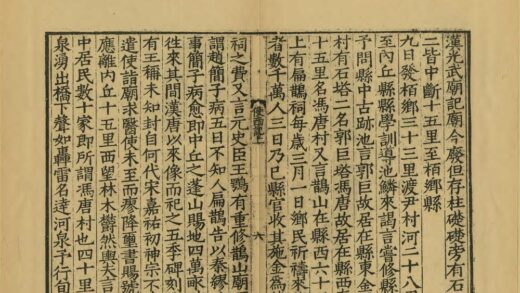 漢光武廟記廟今廢但存柱礎礎旁有石
二皆中斷十五里至栢鄉縣
九日發栢鄉三十三里渡尹村河二十八里
至內丘縣縣學訓導池鱗來謁言嘗修縣
予問縣中古蹟池言郭巨故居在縣東金
村有石塔二名郭巨塔馮唐故居在縣西
十五里名馮唐村又言鵲山在縣西六十
上有扁鵲祠每歲三月一日鄉民祈禱來
者數千萬人三日乃已縣官收其施金爲
六
祠之費又言元史臣王鶚有重修鵲山廟
謂趙簡子病五日不知人扁鵲告以秦繆
事簡子病愈即中丘之蓬山賜地四萬畝
徃來其間漢唐以來像而祀之五季碑刻
有王稱未知封自何代宋嘉祐初神宗不
遣使詣廟求醫使未至而瘳降璽書賜號
應離內丘十五里西望林木欝然輿夫言
中居民數十家即所謂馮唐村也四十里
泉湧出橋下聲如轟雷名達河泉予行旬